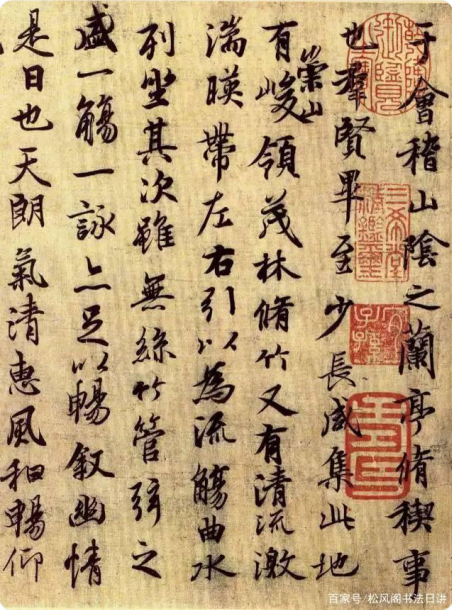 于會稽山陰之蘭亭脩稧事
也羣賢畢至少長咸集此地
有崇山峻領茂林脩竹又有清流激
湍暎帶左右引以為流觴曲水
列坐其次雖無絲竹管弦之
盛一觴一詠亦足以暢叙幽情
是日也天朗氣清惠風和暢仰
百家号/松风阁书法日讲